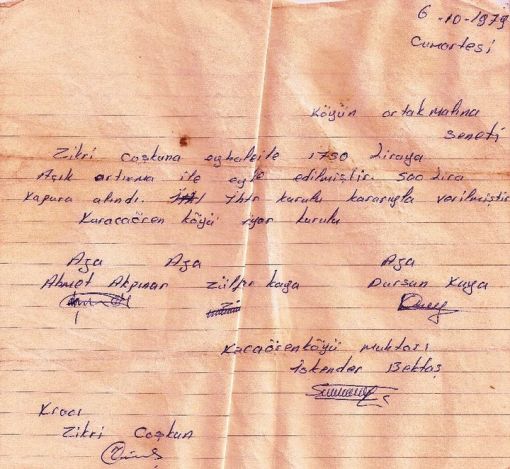 6-10-1979
Cumartesi
Köyün ortak malına
seneti
Zikri Coşkuna eyhaleile 1750 Liraya
Açık artırma ile eyle edilmiştir. 500 Lira
Kapura alındı. İhtr kurulu kararıyla verilmiştir
Karacaören köyü iyar kurulu
Aza Aza Aza
Ahmet Akpınar Zülfr kaya Dursun Kaya
Karaörenköyü muhtarı
İskender Bektaş
Kracı
Zikri Coşkun